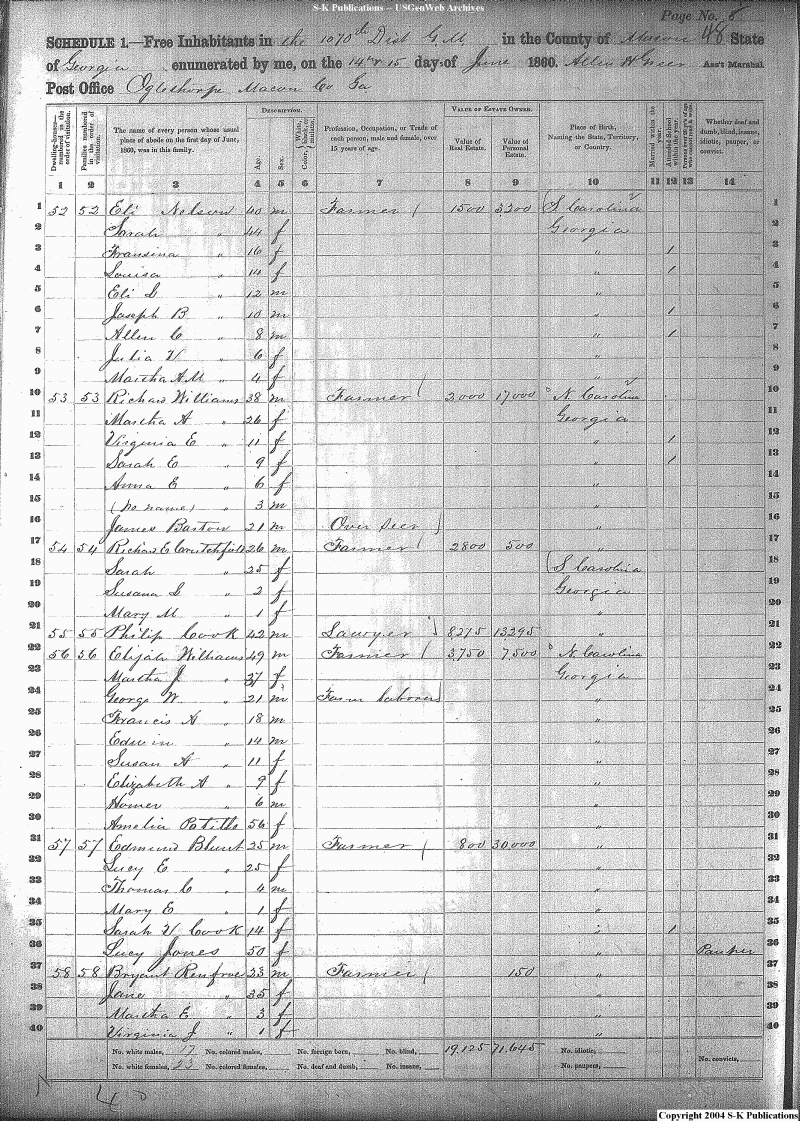 S-K Publications – USGenWeb Archives
Page No. 8
48
SCHEDULE 1.—Free Inhabitants in the 1070th Dist G.M. in the County of Macon State
of Georgia enumerated by me, on the 14 & 15 day of June 1860. Allen H Greer Ass't Marshal
Post Office Oglethorpe Macon Co Ga
Dwelling-houses—numbered in the order of visitation. Families numbered in the order of visitation. The name of every person whose usual place of abode on the first day of June, 1860, was in this family. DESCRIPTION. Age. Sex. Color, White, black, or mulatto. Profession, Occupation, or Trade of each person, male and female, over 15 years of age. VALUE OF ESTATE OWNED. Value of Real Estate. Value of Personal Estate. Place of Birth, Naming the State, Territory, or Country. Married within the year. Attended School within the year. Persons over 20 y'rs of age who cannot read & write. Whether deaf and dumb, blind, insane, idiotic, pauper, or convict.
1 2 3 4 5 6 7 8 9 10 11 12 13 14
1 52 52 Eli Nelson 40 m Farmer 1500 3200 S Carolina 1
2 Sarah " 44 f Georgia 2
3 Fransina " 16 f " 1 3
4 Louisa " 14 f " 1 4
5 Eli L " 12 m " 5
6 Joseph B " 10 m " 1 6
7 Allen C " 8 m " 1 7
8 Julia V " 6 f " 8
9 Martha A M " 4 f " 9
10 53 53 Richard Williams 38 m Farmer 2000 17,000 N. Carolina 10
11 Martha A " 26 f Georgia 11
12 Virginia E " 11 f " 1 12
13 Sarah E " 9 f " 1 13
14 Anna E " 6 f " 14
15 (no name) " 3 m " 15
16 James Bartow 21 m Over Seer " 16
17 54 54 Richard C Crutchfield 26 m Farmer 2800 500 " 17
18 Sarah " 25 f S Carolina 18
19 Susana L " 2 f Georgia 19
20 Mary M " 1 f " 20
21 55 55 Philip Cook 42 m Lawyer 8275 13295 " 21
22 56 56 Elijah Williams 49 m Farmer 3,750 7,500 N. Carolina 22
23 Martha J " 37 f Georgia 23
24 George W " 21 m Farm laborer " 24
25 Francis A " 18 m " 25
26 Edwin " 14 m " 26
27 Susan A " 11 f " 27
28 Elizabeth A " 9 f " 28
29 Homer " 6 m " 29
30 Amelia 56 f " 30
31 57 57 Edmund Blunt 25 m Farmer 800 30,000 " 31
32 Lucy E " 25 f " 32
33 Thomas C " 4 m " 33
34 Mary E " 1 f " 34
35 Sarah V Cook 14 f " 1 35
36 Lucy Jones 50 f " Pauper 36
37 58 58 Bryant Renfroe 23 m Farmer 150 " 37
38 Jane " 35 f " 38
39 Martha E " 3 f " 39
40 Virginia J " 1 f " 40
No. white males, 17 No. colored males, No. foreign born, No. blind, 19,125 71,645 No. idiotic, No. convicts,
No. white females, 23 No. colored females, No. deaf and dumb, No. insane, No. paupers,
40
Copyright 2004 S-K Publications